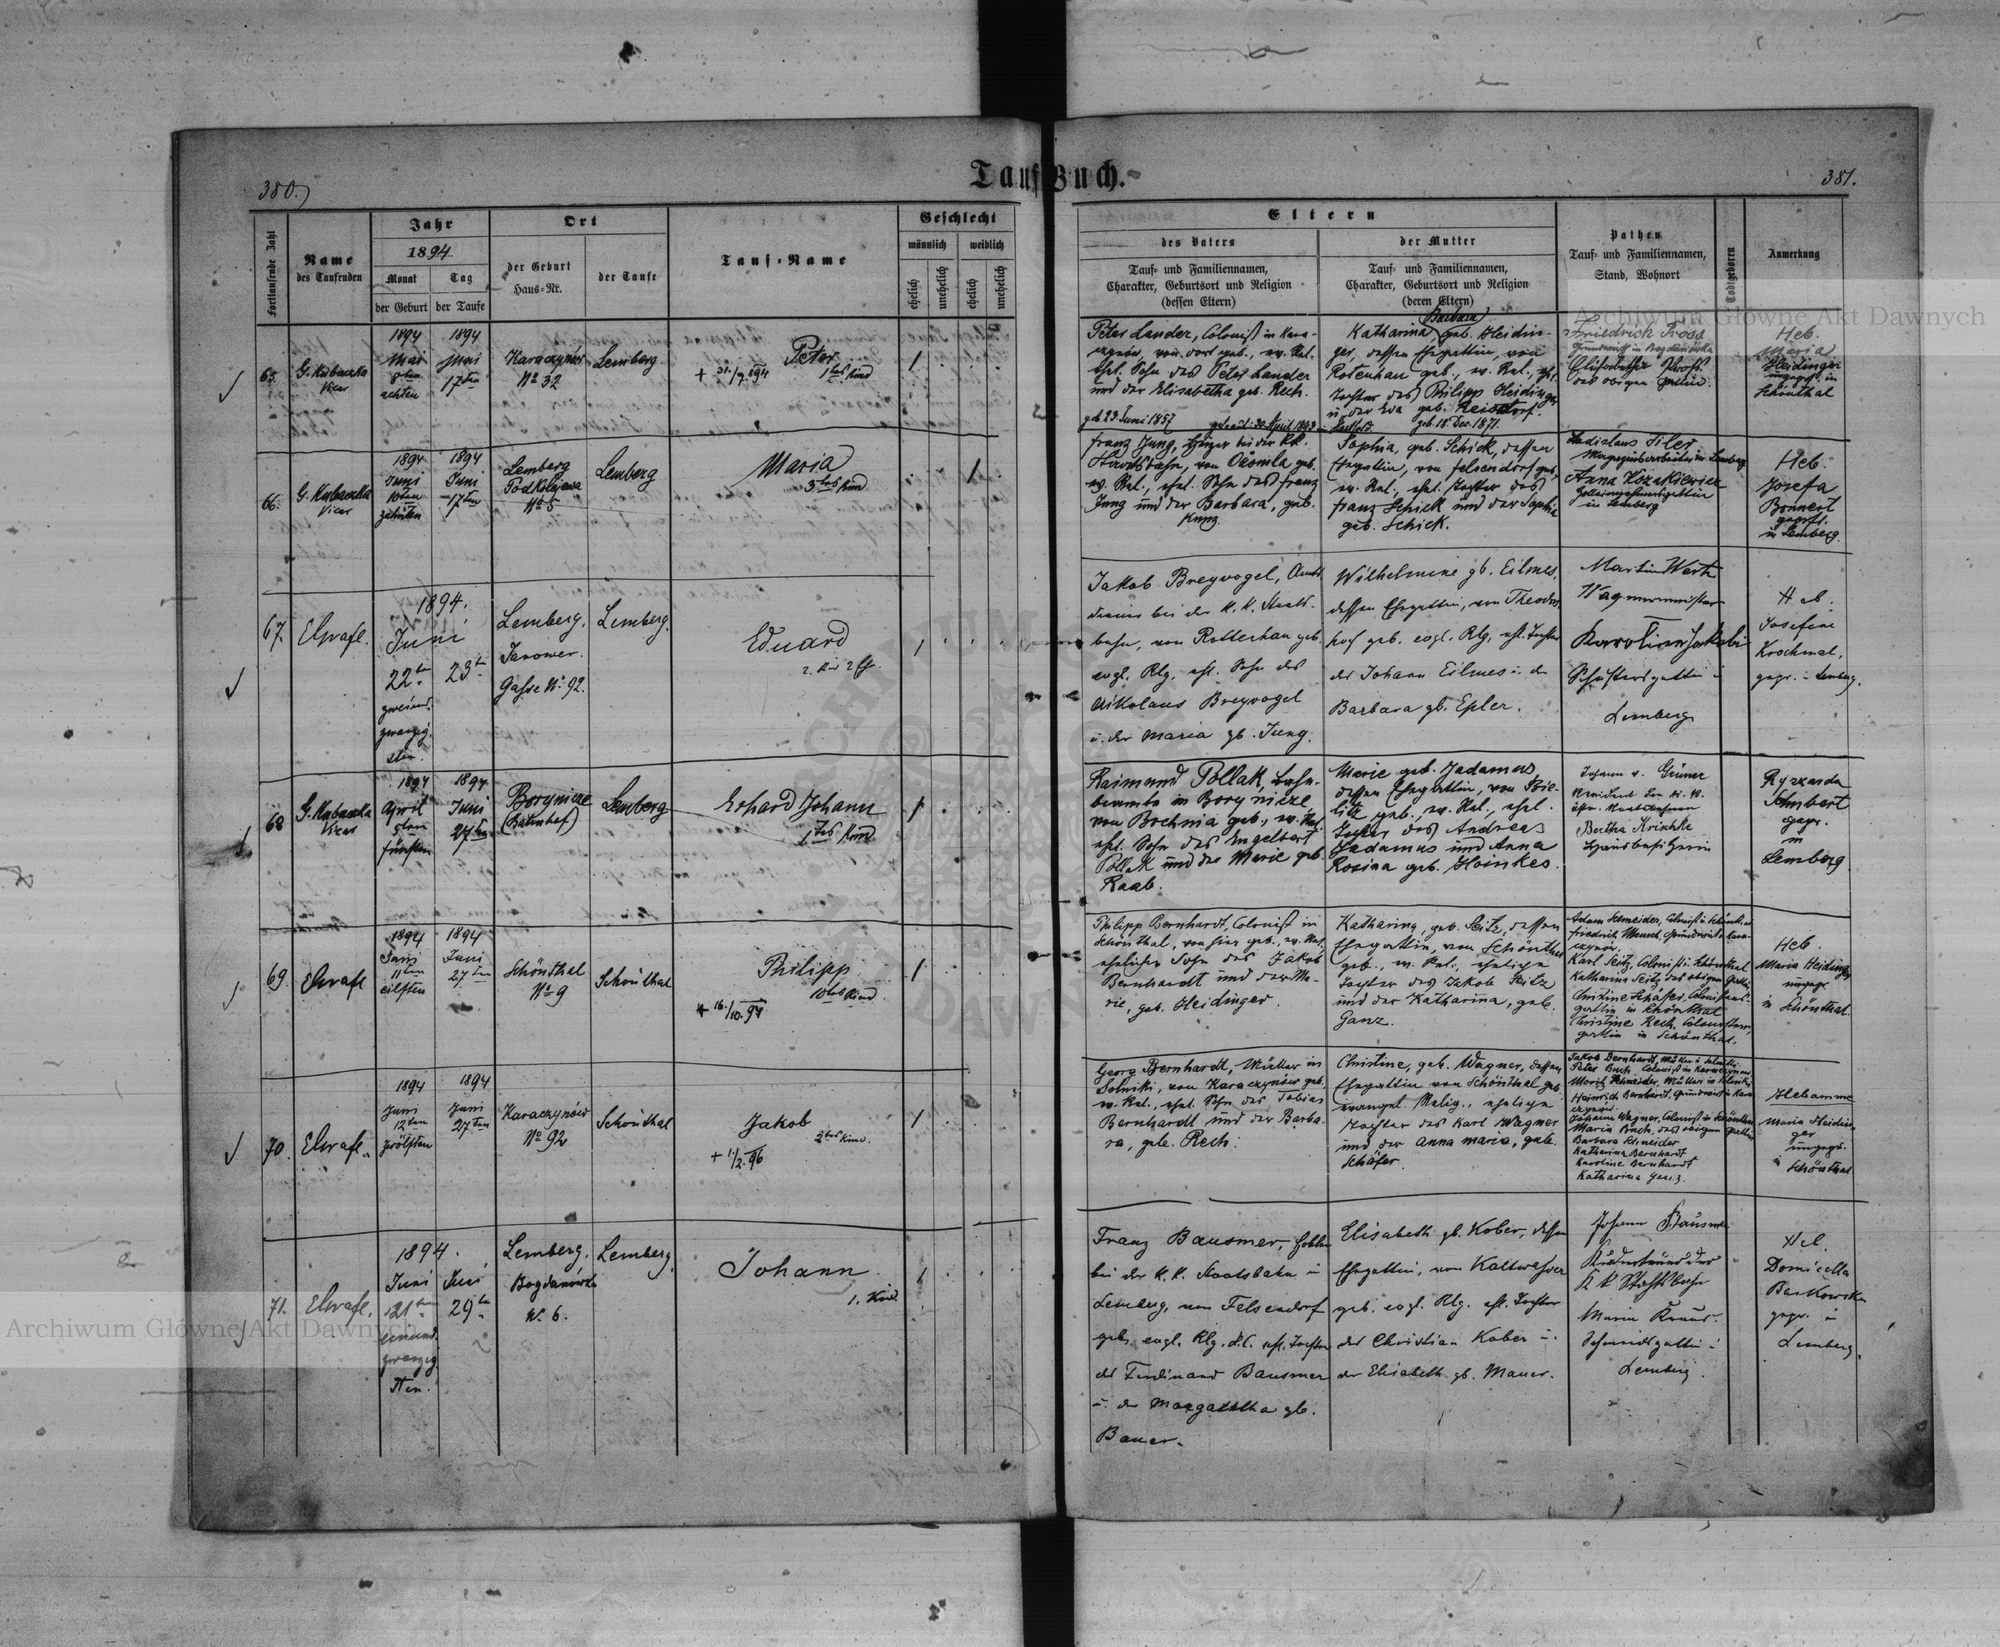 Tauf Buch.
380.
381.
Fortlaufende Zahl
Name
des Taufenden
Jahr
1894
Monat
Tag
der Geburt
der Taufe
Ort
der Geburt
Haus-Nr.
der Taufe
Tauf-Name
Geschlecht
männlich
weiblich
ehelich
unehelich
ehelich
unehelich
Eltern
des Vaters
Tauf- und Familiennamen,
Charakter, Geburtsort und Religion
(dessen Eltern)
der Mutter
Tauf- und Familiennamen,
Charakter, Geburtsort und Religion
(deren Eltern)
Pathen
Tauf- und Familiennamen,
Stand, Wohnort
Todtgeboren
Anmerkung
65.
G. Kubaczka
Vicar
1894
Mai
8ten
achten
1894
Juni
17ten
Karaczynów
No 32
Lemberg
Peter
1tes Kind
1
Peter Lander, Colonist in Kara-
czynów, von dort geb., ev. Rel.
ehl. Sohn des Peter Lander
und der Elisabetha geb. Rech.
geb 23 Juni 1857
Barbara
Katharina geb. Heidin-
ger, dessen Ehegattin, von
Rotenhan geb., ev. Rel., ehl.
Tochter des Philipp Heidinger
u. der Eva geb. Reisdorf.
geb. 18. Dec. 1871.
Friedrich
Elisabetha
des obigen Gattin.
Heb.
Maria
Heidinger
ungepr. in
Schönthal
66.
G. Kubaczka
Vicar
1894
Juni
10ten
zehnten
1894
Juni
17ten
Lemberg
No 5
Lemberg
Maria
3tes Kind
1
Franz Jung, Heizer bei der k.k.
Staatsbahn, von Ottomla geb.
ev. Rel., ehl. Sohn des Franz
Jung und der Barbara, geb.
Kunz.
Sophia, geb. Schick, dessen
Ehegattin, von Felsendorf geb.
ev. Rel., ehl. Tochter des
Franz Schick und der Sophia
geb. Schick.
Ladislaus
Magazinsarbeiter in Lemberg
Anna Kozakiewicz
in Lemberg
Heb.
Josefa
Bonnert
geprft.
in Lemberg.
67.
Elsrafl.
1894.
Juni
22ten
zweiund-
zwanzig-
sten.
23ten
Lemberg.
Janower
Gasse No. 92.
Lemberg.
Eduard
1
Jakob Breyvogel, Amts-
diener bei der k. k. Staats-
bahn, von Rottenhan geb.
evgl. Rlg., ehl. Sohn des
Nikolaus Breyvogel
u. der Maria gb. Jung.
Wilhelmine gb. Eilmes,
dessen Ehegattin, von Theodors-
hof geb. evgl. Rlg., ehl. Tochter
des Johann Eilmes u. der
Barbara gb. Epler.
Martin Werth
Wagnermeister
Schustersgattin in
Lemberg
Heb.
Josefine
Krochmal,
gepr. in Lemberg.
68
G. Kubaczka
Vicar
1894
April
5ten
fünften
1894
Juni
24ten
Borynicze
(Bahnhof)
Lemberg
Erhard Johann
1tes Kind
1
Raimund Pollak, Bahn-
beamte in Borynicze,
von Bochnia geb., ev. Rel.
ehl. Sohn des Engelbert
Pollak und der Marie geb.
Raab.
Marie geb. Jadamus,
dessen Ehegattin, von Bie-
litz geb., ev. Rel., ehel.
Tochter des Andreas
Jadamus und Anna
Rosina geb. Hoinkes.
Johann v. Grüner
Präsident der k. k.
Bertha Krischke
Hausbesitzerin
Ryszarda
Schubert
gepr.
in
Lemberg
69.
Elsrafl
1894
Juni
11ten
eilften
1894
Juni
27ten
Schönthal
No 9
Schönthal
Philipp
10tes Kind.
+ 16./10. 94
1
Philipp Bernhardt, Colonist in
Schönthal, von hier geb., ev. Rel.
ehelicher Sohn des Jakob
Bernhardt und der Ma-
rie, geb. Heidinger.
Katharina, geb. Seitz, dessen
Ehegattin, von Schönthal
geb., ev. Rel., eheliche
Tochter des Jakob Seitz
und der Katharina, geb.
Ganz.
Adam Schneider, Colonist in Schönthal
Friedrich Mensch, Grundwirt in Kara-
czynów.
Karl Seitz, Colonist in Schönthal
Katharina Seitz, des obigen Gattin,
Christine Schäfer, Colonistens-
gattin in Schönthal
Christine Rech, Colonistens-
gattin in Schönthal.
Heb.
Maria Heidinger
ungepr.
in Schönthal.
70.
Elsrafl.
1894
Juni
12ten
zwölften
1894
Juni
27ten
Karaczynów
No 92
Schönthal
Jakob
2tes Kind.
+ 11/2. 96
1
Georg Bernhardt, Müller in
Solniki, von Karaczynów geb.
ev. Rel., ehel. Sohn des Tobias
Bernhardt und der Barba-
ra, geb. Rech.
Christine, geb. Wagner, dessen
Ehegattin von Schönthal geb.
evangel. Relig., eheliche
Tochter des Karl Wagner
und der Anna Maria, geb.
Schäfer.
Jakob Bernhardt, Müller in Solniki.
Peter Buch, Colonist in Karaczynów
Moritz Schneider, Müller in Solniki
Heinrich Bernhardt, Grundwirt in Kara-
czynów.
Johann Wagner, Colonist in Schönthal
Maria Buch, des obigen Gattin
Barbara Schneider
Katharina Bernhardt
Karoline Bernhardt
Katharina Ganz.
Hebamme
Maria Heidin-
ger
ungepr.
in Schönthal
71.
Elsrafl.
1894.
Juni
21ten
einund-
zwanzig-
sten.
Juni
29ten
Lemberg.
Bogdanówka
No. 6.
Lemberg.
Johann
1. Kind.
1
Franz Bausmer, Hobler
bei der k. k. Staatsbahn in
Lemberg, von Felsendorf
geb. evgl. Rlg.
des Ferdinand Bausmer
u. der Margaretha gb.
Bauer.
Elisabeth gb. Kober, dessen
Ehegattin, von Kaltwasser
geb. evgl. Rlg. ehl. Tochter
des Christian Kober u.
der Elisabeth gb. Mauer.
Johann Bausmer
k k Staatsbahn
Maria Kraus.
Schmidsgattin in
Lemberg.
Heb.
Domicella
Barkowska
gepr. in
Lemberg.
Archiwum Główne Akt Dawnych
Archiwum Główne Akt Dawnych